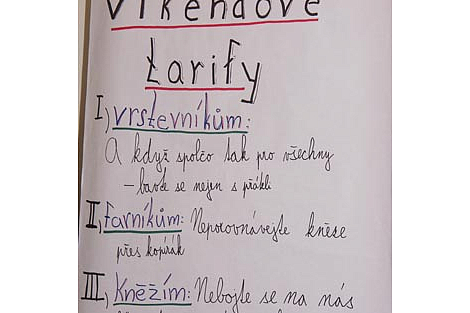 Víkendové
tarify
I) vrstevníkům:
A když společo tak pro všechny
– bavte se nejen s přáteli
II) Farníkům: Neporovnávejte kněze
přes kopírák
III) Kněžím: Nebojte se na nás